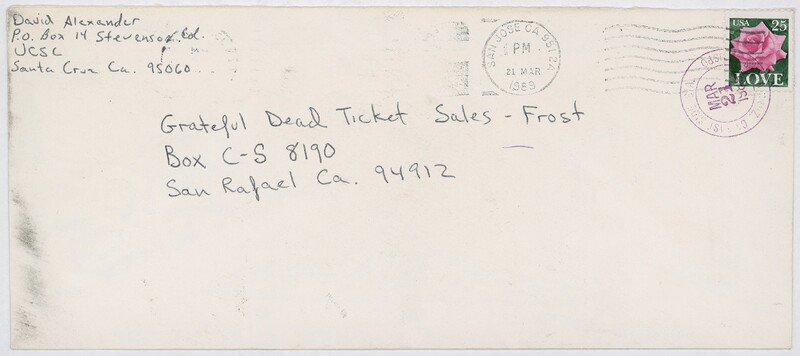 David Alexander
P.O. Box 14 Stevenson Col.
UCSC
Santa Cruz Ca. 95060
SAN JOSE CA 951
PM
21 MAR
1989
USA 25
LOVE
MAR
21
Grateful Dead Ticket Sales - Frost
Box C-S 8190
San Rafael Ca. 94912